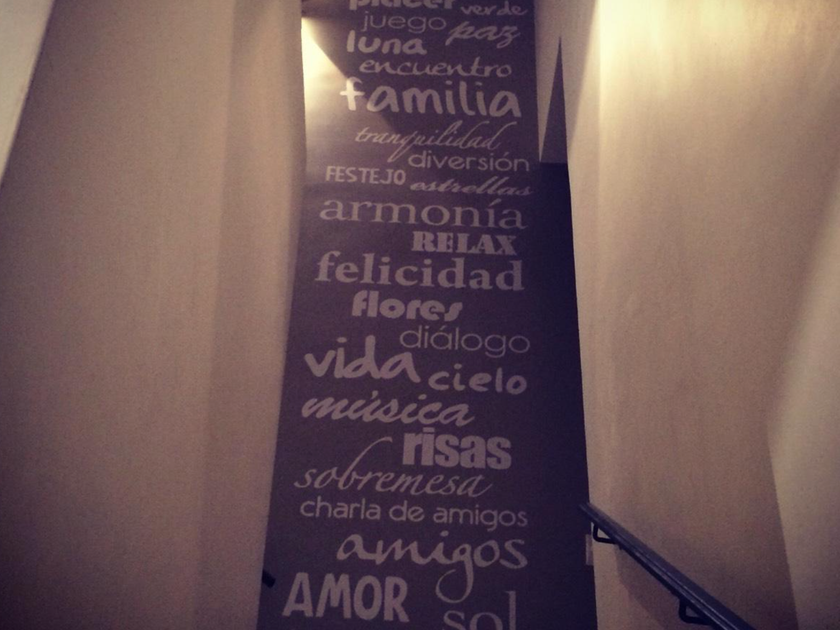 placer verde
juego paz
luna
encuentro
familia
tranquilidad
diversión
FESTEJO estrellas
armonía
RELAX
felicidad
flores
diálogo
vida cielo
música
risas
sobremesa
charla de amigos
amigos
AMOR sol